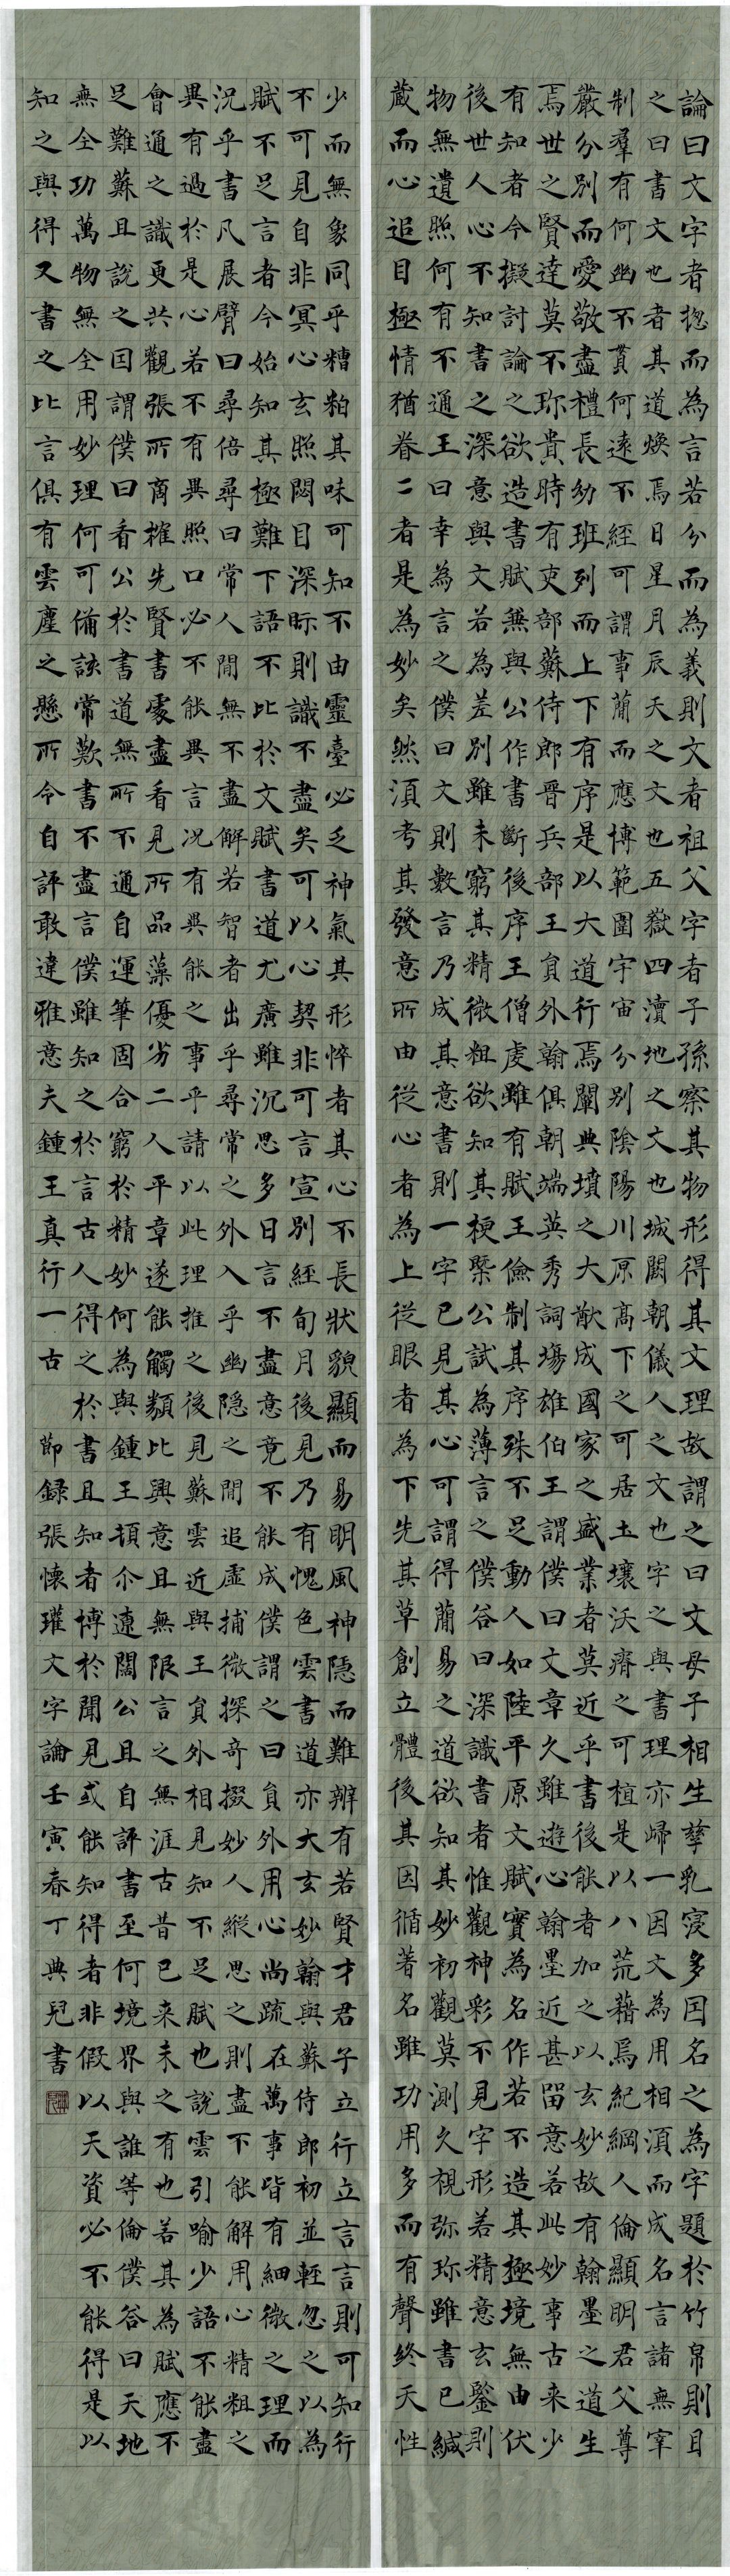 論曰文字者揔而為言若分而為義則文者祖父字者子孫察其物形得其文理故謂之曰文母子相生孳乳寖多因名之為字題於竹帛則目
之曰書文也者其道煥焉日星月辰天之文也五嶽四瀆地之文也城闕朝儀人之文也字之與書理亦歸一因文為用相須而成名言諸無宰
制羣有何幽不貫何遠不經可謂事簡而應博範圍宇宙分別陰陽川原高下之可居土壤沃瘠之可植是以八荒藉焉紀綱人倫顯明君父尊
嚴分別而愛敬盡禮長幼班列而上下有序是以大道行焉闡典墳之大猷成國家之盛業者莫近乎書後能者加之以玄妙故有翰墨之道生
焉世之賢達莫不珎貴時有吏部蘇侍郎晉兵部王員外翰俱朝端英秀詞場雄伯王謂僕曰文章久雖遊心翰墨近甚留意若此妙事古来少
有知者今擬討論之欲造書賦兼與公作書斷後序王僧虔雖有賦王儉制其序殊不足動人如陸平原文賦實為名作若不造其極境無由伏
後世人心不知書之深意與文若為差別雖未窮其精微粗欲知其梗槩公試為薄言之僕答曰深識書者惟觀神彩不見字形若精意玄鑒則
物無遺照何有不通王曰幸為言之僕曰文則數言乃成其意書則一字已見其心可謂得簡易之道欲知其妙初觀莫測久視弥珎雖書已緘
藏而心追目極情猶眷二者是為妙矣然須考其發意所由從心者為上從眼者為下先其草創立體後其因循著名雖功用多而有聲終天性
少而無象同乎糟粕其味可知不由靈臺必乏神氣其形悴者其心不長狀貌顯而易明風神隱而難辨有若賢才君子立行立言言則可知行
不可見自非冥心玄照閎目深眎則識不盡矣可以心契非可言宣別經旬月後見乃有愧色雲書道亦大玄妙翰與蘇侍郎初並輕忽之以為
賦不足言者今始知其極難下語不比於文賦書道尤廣雖沉思多日言不盡意竟不能成僕謂之曰員外用心尚疏在萬事皆有細微之理而
況乎書凡展臂曰尋倍尋曰常人間無不盡解若智者出乎尋常之外入乎幽隐之間追虛捕微探奇掇妙人縱思之則盡下能解用心精粗之
異有過於是心若不有異照口必不能異言况有異能之事乎請以此理推之後見蘇雲近與王員外相見知不足賦也說雲引喻少語不能盡
會通之識更共觀張所商榷先賢書處盡看見所品藻優劣二人平章遂能觸類比興意且無限言之無涯古昔已来未之有也若其為賦應不
足難蘇且說之因謂僕曰看公於書道無所不通自運筆固合窮於精妙何為與鍾王頓尒遼闊公且自評書至何境界與誰等倫僕答曰天地
無全功萬物無全用妙理何可備該常歎書不盡言僕雖知之於言古人得之於書且知者博於聞見或能知得者非假以天資必不能得是以
知之與得又書之比言俱有雲塵之懸所令自評敢違雅意夫鍾王真行一古 節録張懷瓘文字論壬寅春丁典兒書